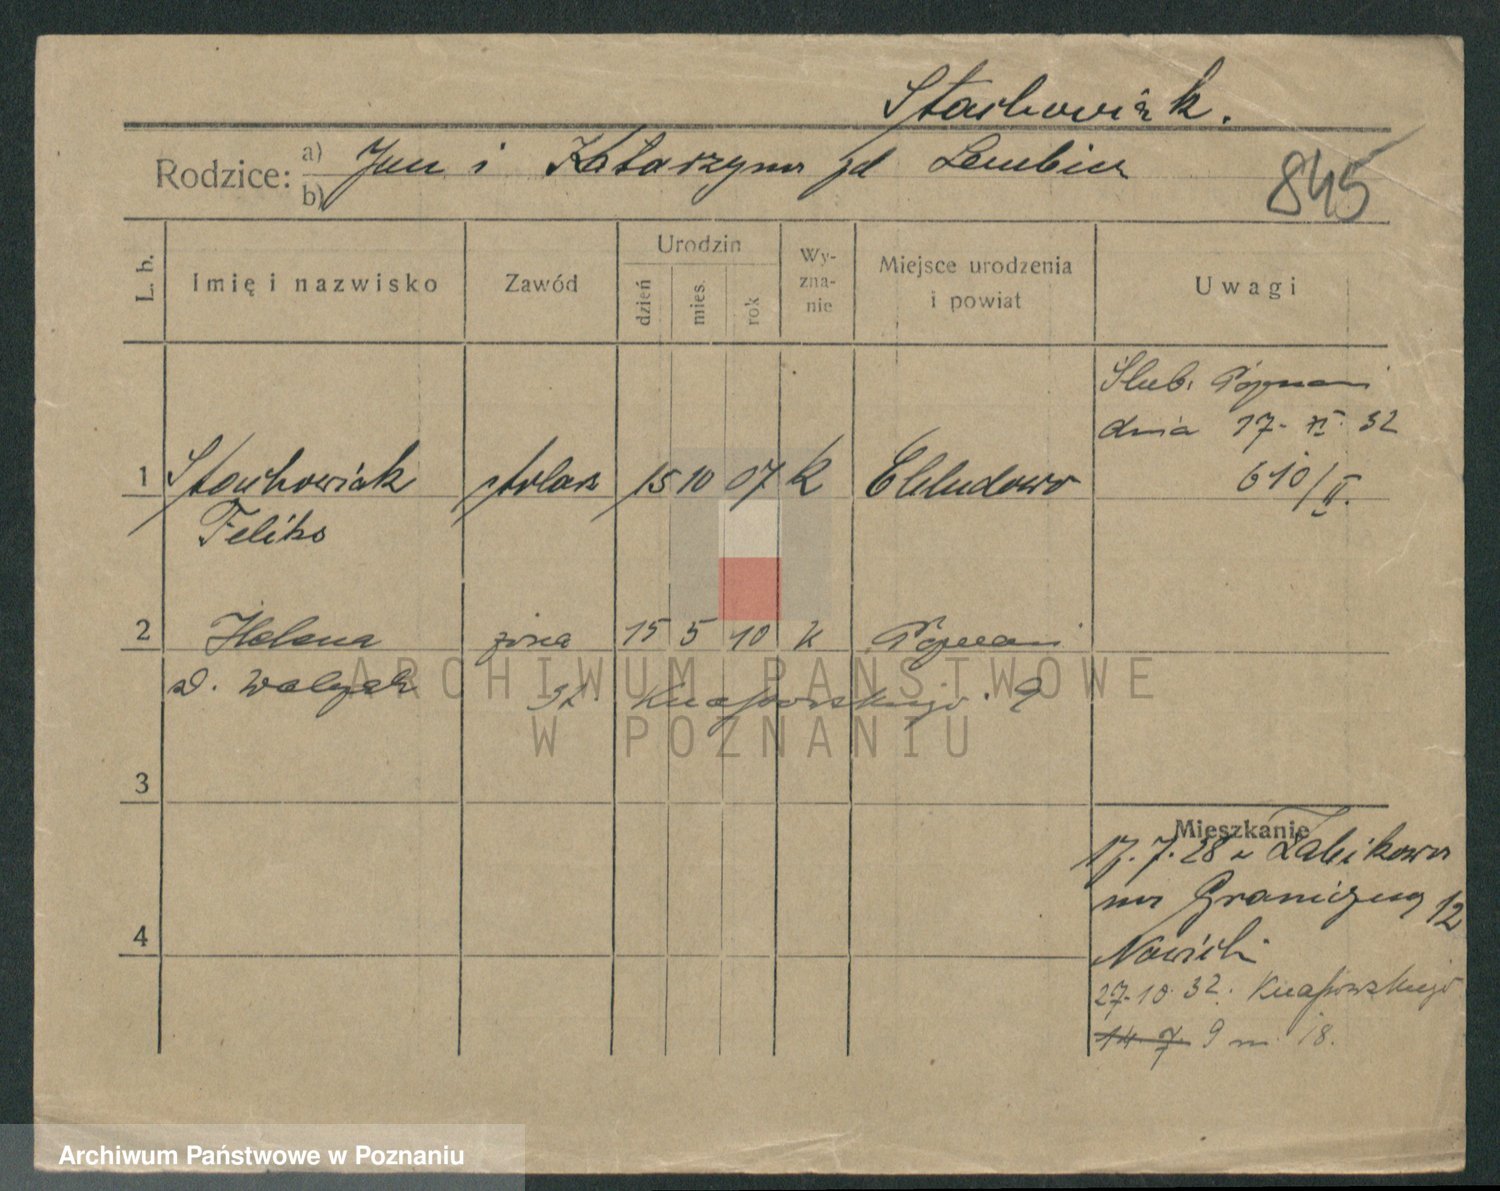 Stachowiak.
Rodzice: a) b) Jan i Katarzyna zd
845
L. b.
Imię i nazwisko
Zawód
Urodzin
dzień
mies.
rok
Wy-
zna-
nie
Miejsce urodzenia
i powiat
Uwagi
Ślub. Poznań
dnia 17. XI. 32
610/II.
1 Stachowiak stolarz 15 10 07 k
Feliks
2 Helena żona 15 5 10 k Poznań
d. Walczak Knapowskiego 9
ARCHIWUM PAŃSTWOWE
W POZNANIU
3
Mieszkanie
17.7.28 z Żabikowa
na Graniczną 12
4
27.10.32. Knapowskiego
14 7 9 m 18.
Archiwum Państwowe w Poznaniu